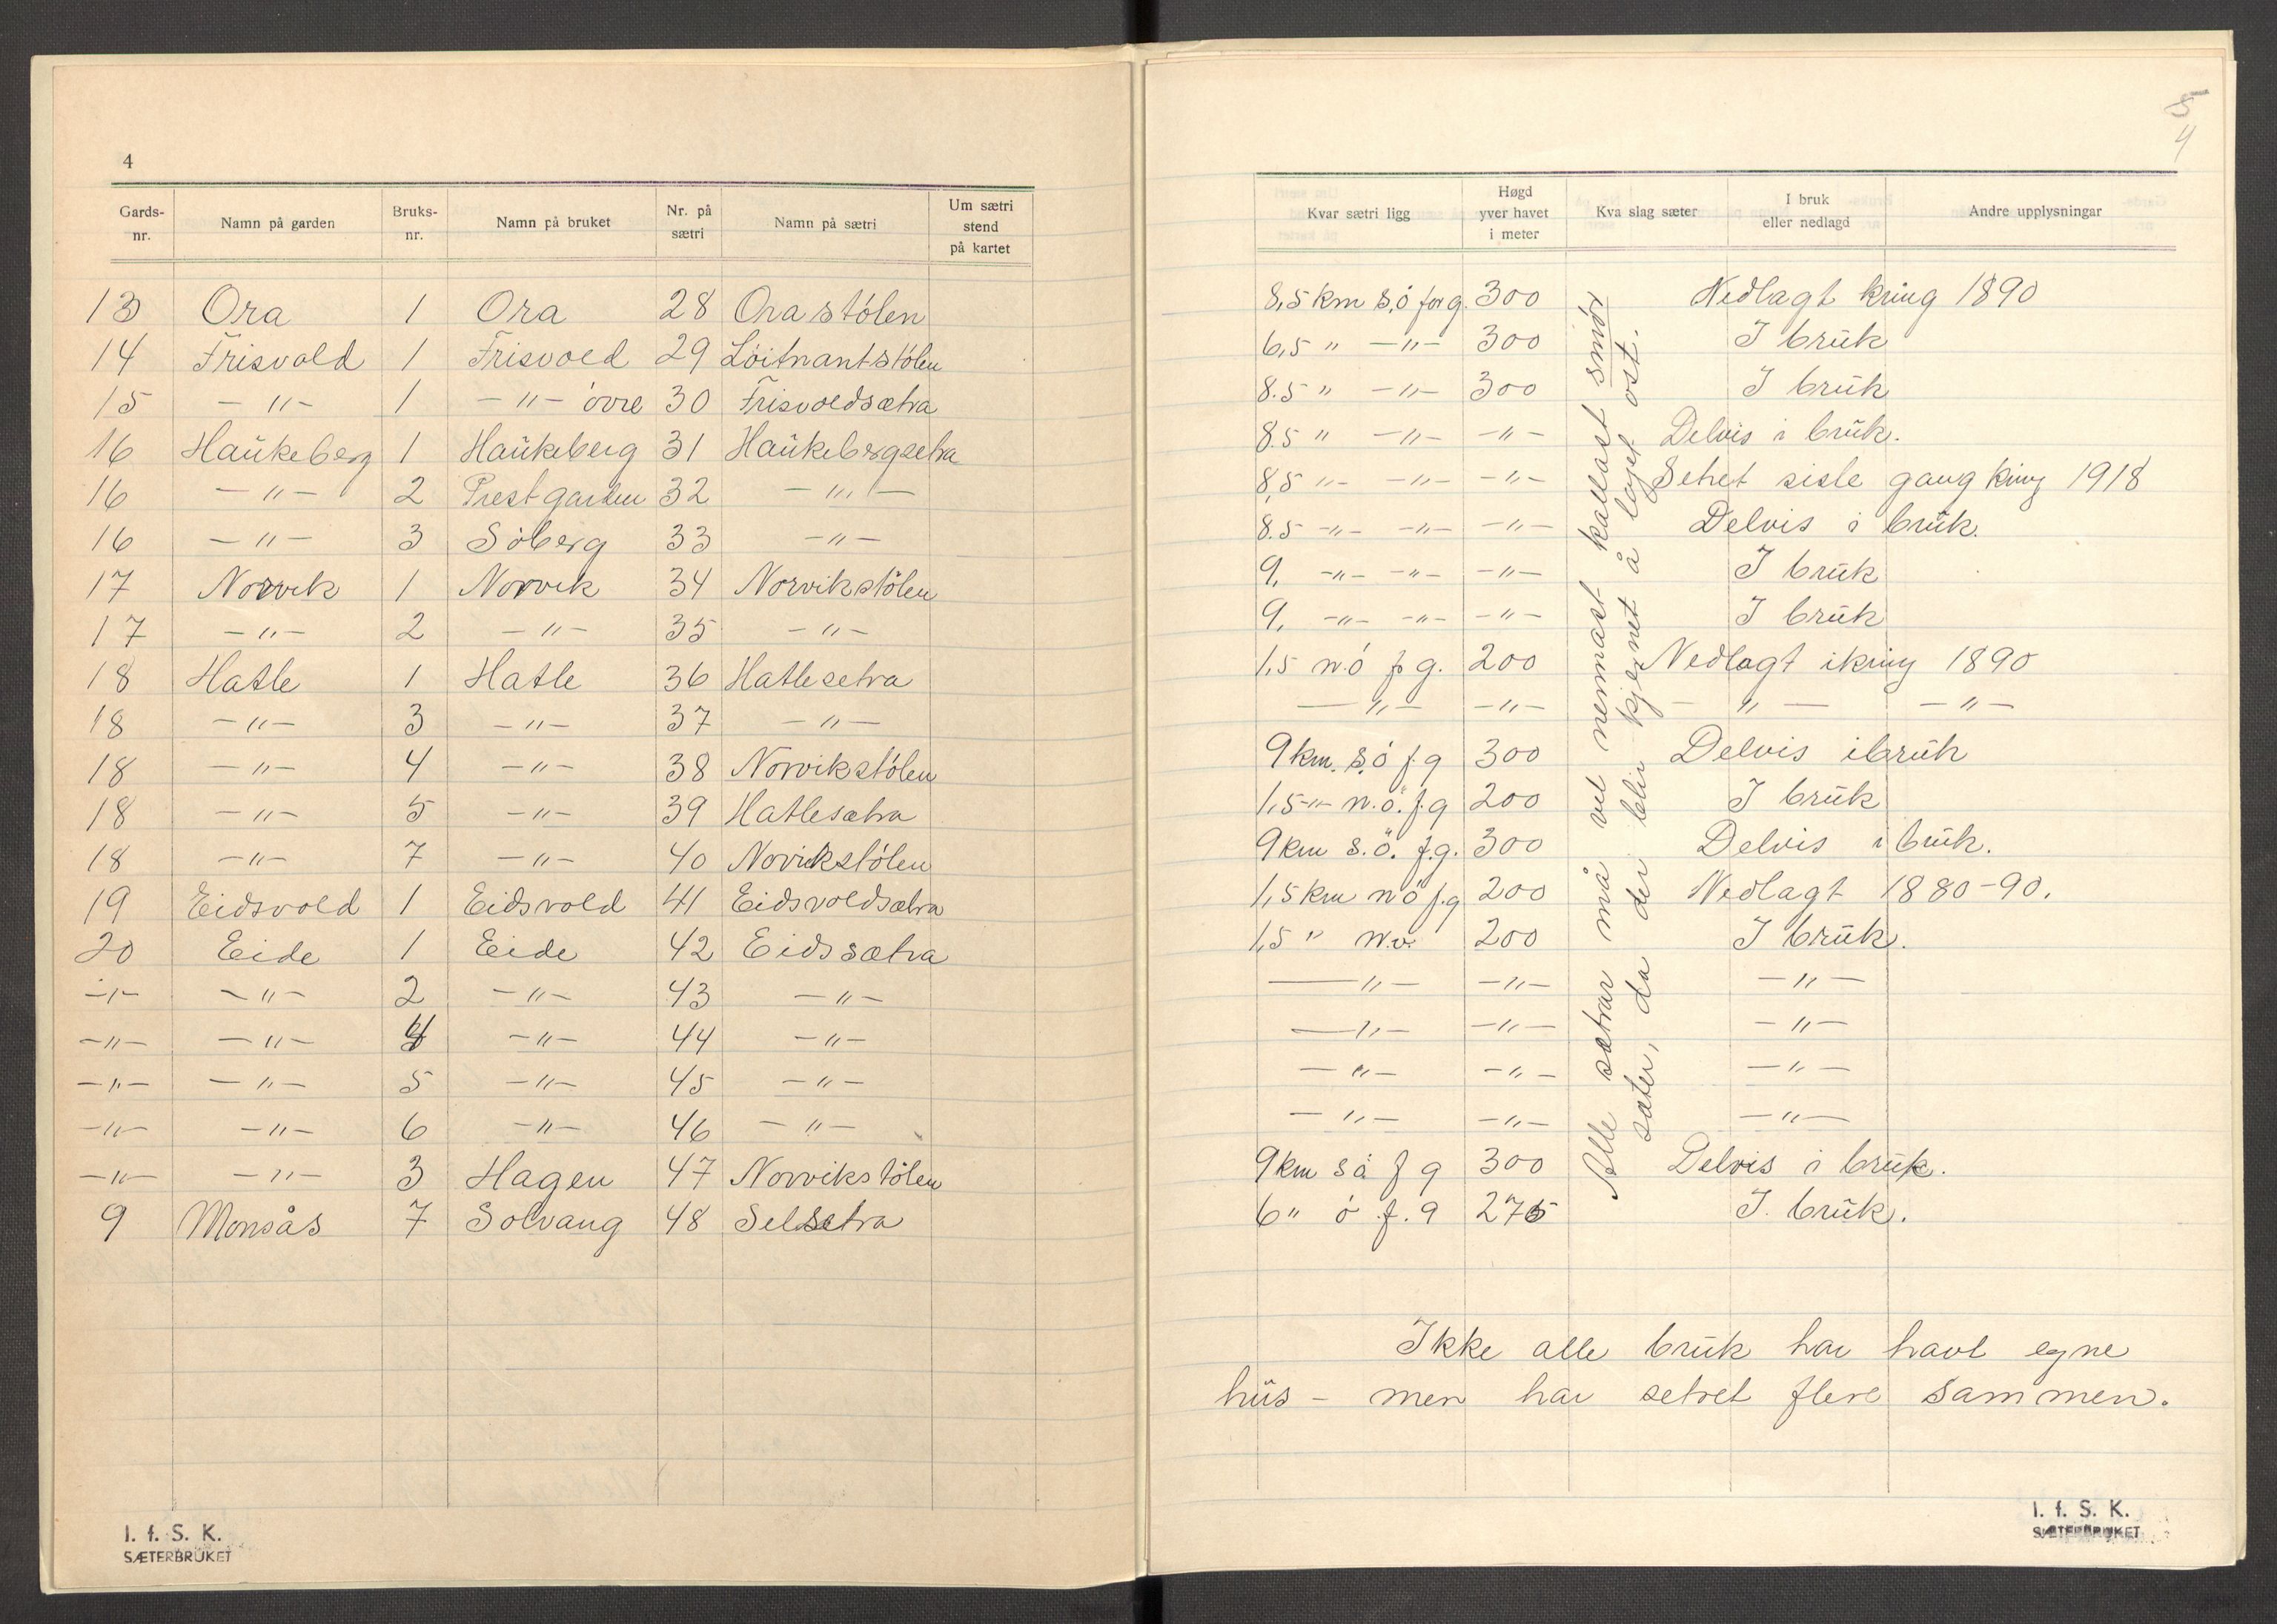 4
Gards-nr. | Namn på garden | Bruks-nr. | Namn på bruket | Nr. på sætri | Namn på sætri | Um sætri stend på kartet
13 Ora 1 Ora 28 Orastölen
14 Frisvold 1 Frisvold 29 Löitnantstölen
15 -"- 1 -"- övre 30 Frisvoldsætra
16 Haukeberg 1 Haukeberg 31 Haukebergsetra
16 -"- 2 Prestgarden 32 -"-
16 -"- 3 Söberg 33 -"-
17 Norvik 1 Norvik 34 Norvikstölen
17 -"- 2 -"- 35 -"-
18 Hatle 1 Hatle 36 Hatlesetra
18 -"- 3 -"- 37 -"-
18 -"- 4 -"- 38 Norvikstölen
18 -"- 5 -"- 39 Hatlesætra
18 -"- 7 -"- 40 Novikstölen
19 Eidsvold 1 Eidsvold 41 Eidsvoldsætra
20 Eide 1 Eide 42 Eidssætra
-"- -"- 2 -"- 43 -"-
-"- -"- 4 -"- 44 -"-
-"- -"- 5 -"- 45 -"-
-"- -"- 6 -"- 46 -"-
-"- -"- 3 Hagen 47 Norvikstölen
9 Monsås 7 Solvang 48 Selsetra
I. f. S. K.
SÆTERBRUKET
5
4
Kvar sætri ligg | Høgd yver havet i meter | Kva slag sæter | I bruk eller nedlagd | Andre upplysningar
8,5 km s,ö for g. 300 Nedlagt kring 1890
6,5 " -"- 300 I bruk
8.5 " -"- 300 I bruk
8.5 " -"- -"- Delvis i bruk.
8,5 -"- -"- -"- Setret siste gang kring 1918
8.5 -"- -"- -"- Delvis i bruk.
9, -"- -"- -"- I bruk
9, -"- -"- -"- I bruk
1,5 n.ö f g. 200 Nedlagt ikring 1890
-"- -"- -"- -"-
9 km. s,ö f. g 300 Delvis i bruk
1,5 -"- n.ö. f. g 200 I bruk
9 km s.ö. f.g. 300 Delvis i bruk.
1,5 km nö f.g 200 Nedlagt 1880-90.
1,5 " n.v. 200 I bruk.
-"- -"- -"-
-"- -"- -"-
-"- -"- -"-
-"- -"- -"-
9 km sö f g 300 Delvis i bruk.
6 " ö f. g 275 I. bruk.
Alle sætrar må vel nermast kallast smör
sæter, da der blir kjernet å laget ost.
Ikke alle bruk har havt egne
hus - men har setret flere sammen.
I. f. S. K.
SÆTERBRUKET